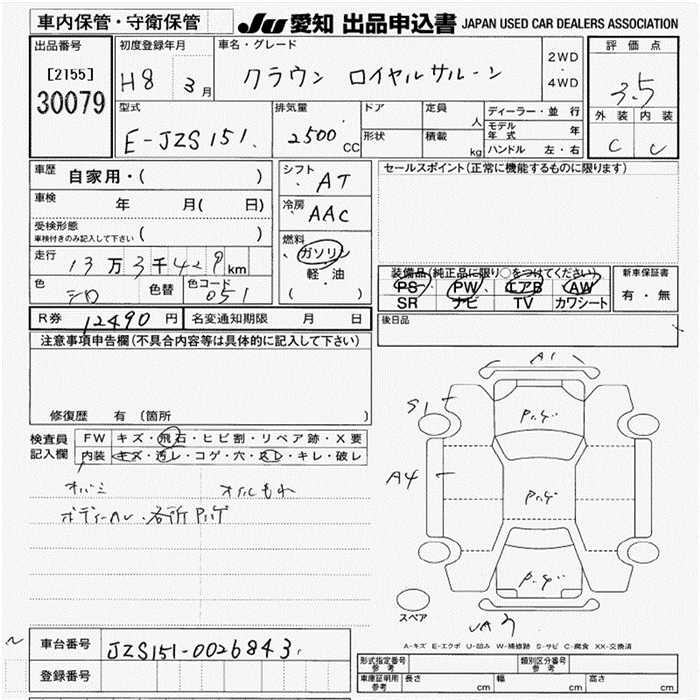 車内保管・守衛保管
JU 愛知 出品申込書 JAPAN USED CAR DEALERS ASSOCIATION
出品番号 [2155] 30079
初度登録年月 H8 年 3月
車名・グレード クラウン ロイヤルサルーン
2WD ・ 4WD
評価点 3.5
外装 内装
C C
型式 E-JZS151
排気量 2500 CC
ドア 形状
定員 人
積載 kg
ディーラー・並行
モデル年式 年
ハンドル 左・右
車歴 自家用・( )
車検 年 月( 日)
受検形態 車検付きのみ記入して下さい ( )
走行 13万3千429km
色 シロ 色替 色コード 051
シフト AT
冷房 AAC
燃料 ガソリン
軽・油
( )
セールスポイント(正常に機能するものに限ります)
装備品(純正品に限り○をつけてください)
PS PW エアB AW
SR ナビ TV カワシート
新車保証書
有・無
R券 12490円 名変通知期限 月 日
後日品
注意事項申告欄(不具合内容等は具体的に記入して下さい)
修復歴 有 (箇所 )
検査員記入欄
FW キズ・飛石・ヒビ割・リペア跡・X要
内装 キズ・汚レ・コゲ・穴・スレ・キレ・破レ
オルもれ
各所
A1
S1
A4
スペア
A-キズ E-エクボ U-凹み W-補修跡 S-サビ C-腐食 XX-交換済
車台番号 JZS151-0026843
登録番号
形式指定番号 参考
類別区分番号 参考
車庫証明用 参考 長さ cm 幅 cm 高さ cm